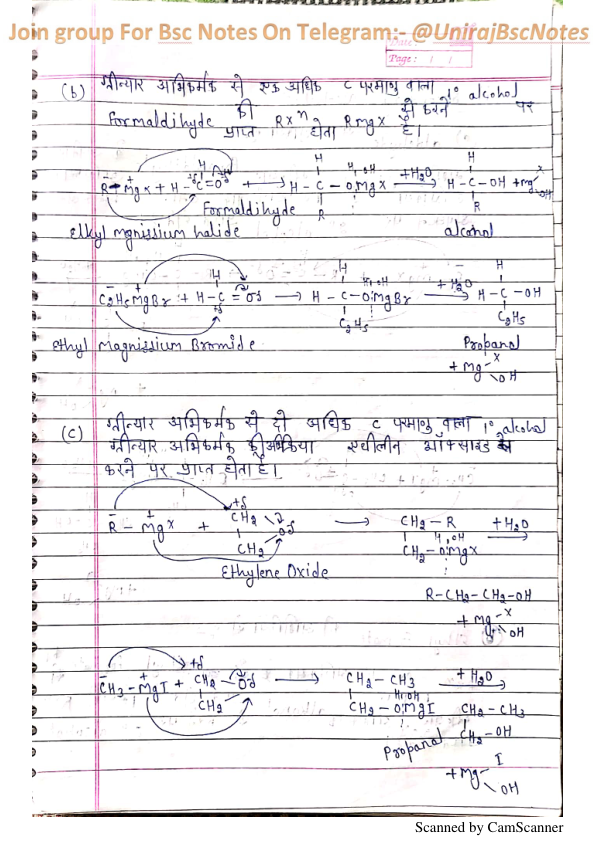 Join group For Bsc Notes On Telegram:- @UnirajBscNotes
Date:
Page:
(b) ग्रीन्यार अभिकर्मक से एक अधिक C परमाणु वाला 1° alcohol
Formaldihyde की Rxn Rmgx से करने पर
प्राप्त होता है।
R - Mgx + H - C = O → H - C - OMgx +H2O → H - C - OH + mg x OH
Formaldihyde
Elkyl mgnissium halide alcohol
C2H5MgBr + H - C = O → H - C - O MgBr + H2O → H - C - OH
C2H5 C2H5
Ethyl Magnissium Bromide Propanol
+ Mg x OH
(c) ग्रीन्यार अभिकर्मक से दो अधिक C परमाणु वाला 1° alcohol
ग्रीन्यार अभिकर्मक की अभिक्रिया एथीलीन ऑक्साइड से
करने पर प्राप्त होता है।
R - Mgx + CH2 → CH2 - R +H2O
CH2 O CH2 - O Mgx
Ethylene Oxide
R - CH2 - CH2 - OH
+ Mg x OH
CH3 - MgI + CH2 - O → CH2 - CH3 + H2O
CH2 CH2 - O MgI CH2 - CH3
Propanol CH2 - OH
+ Mg I OH
Scanned by CamScanner